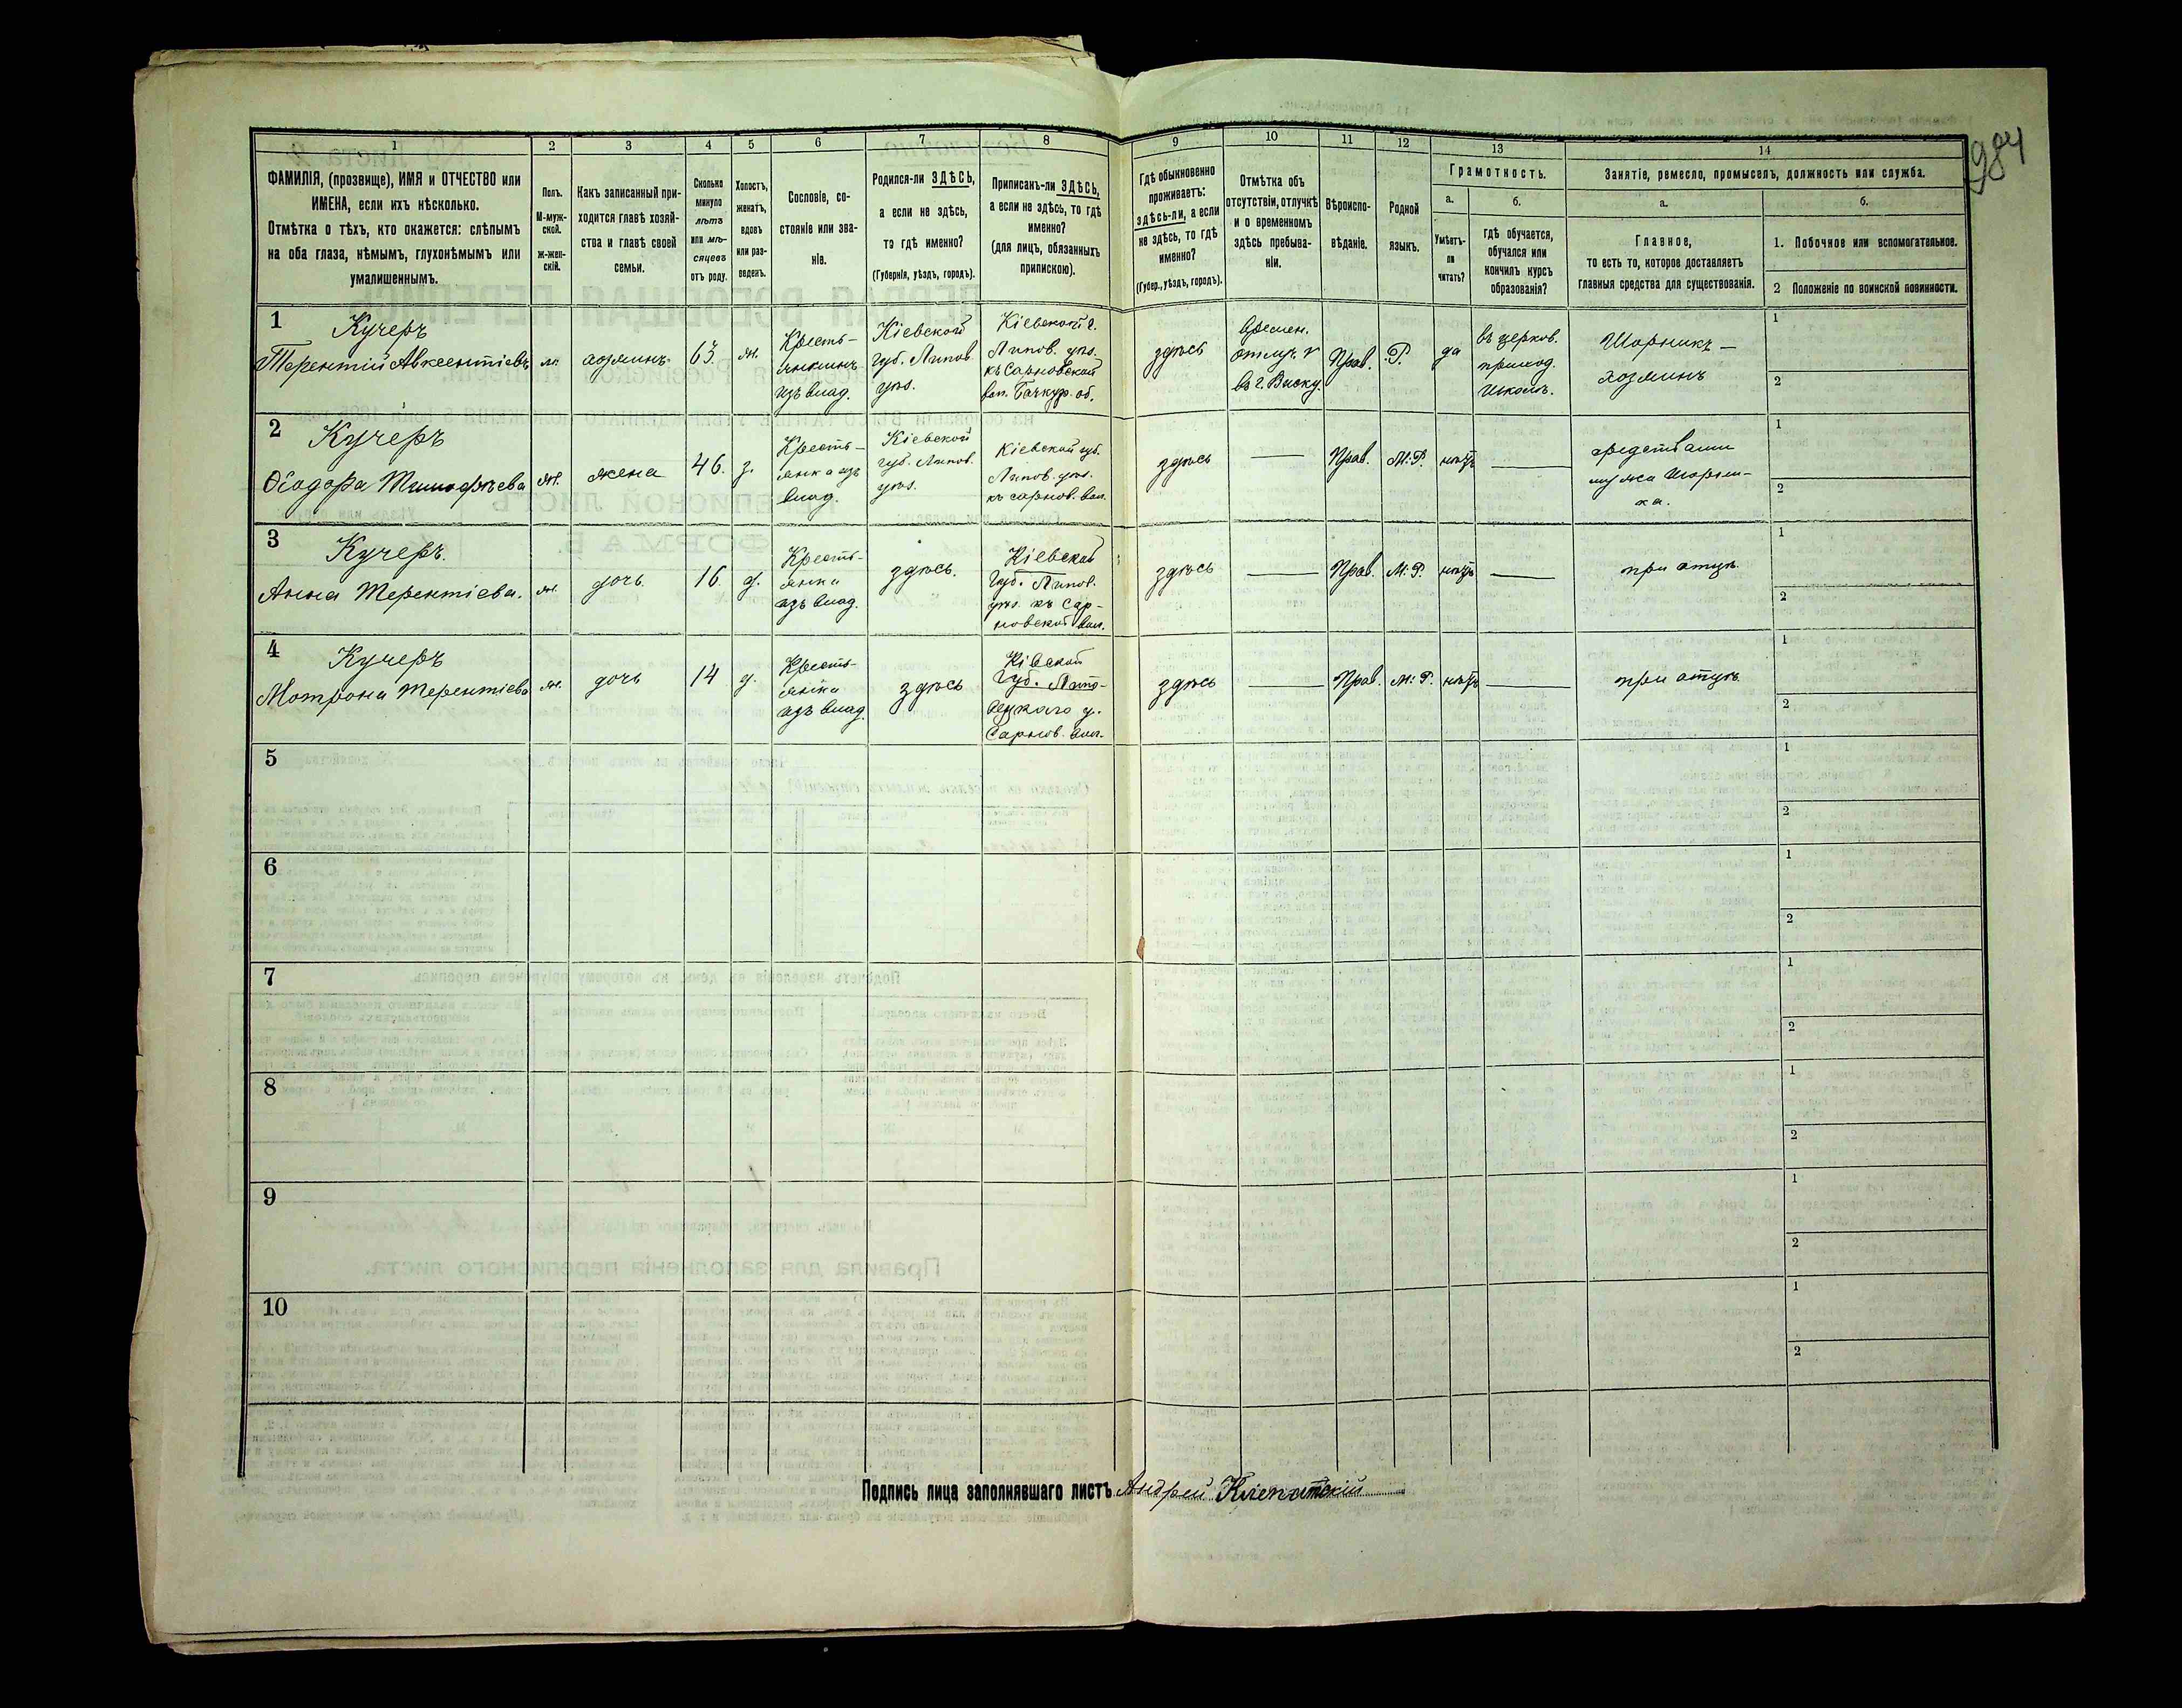 984
1
2
3
4
5
6
7
8
9
10
11
12
13
14
ФАМИЛІЯ, (прозвище), ИМЯ и ОТЧЕСТВО или
ИМЕНА, если ихъ нѣсколько.
Отмѣтка о тѣхъ, кто окажется: слѣпымъ
на оба глаза, нѣмымъ, глухонѣмымъ или
умалишеннымъ.
Полъ.
М-муж-
ской.
Ж-жен-
скій.
Какъ записанный при-
ходится главѣ хозяй-
ства и главѣ своей
семьи.
Сколько
минуло
лѣтъ
или мѣ-
сяцевъ
отъ роду.
Холостъ,
женатъ,
вдовъ
или раз-
веденъ.
Сословіе, со-
стояніе или зва-
ніе.
Родился-ли ЗДѢСЬ,
а если не здѣсь,
то гдѣ именно?
(Губернія, уѣздъ, городъ).
Приписанъ-ли ЗДѢСЬ,
а если не здѣсь, то гдѣ
именно?
(для лицъ, обязанныхъ
припискою).
Гдѣ обыкновенно
проживаетъ:
здѣсь-ли, а если
не здѣсь, то гдѣ
именно?
(Губер., уѣздъ, городъ).
Отмѣтка объ
отсутствіи, отлучкѣ
и о временномъ
здѣсь пребыва-
ніи.
Вѣроиспо-
вѣданіе.
Родной
языкъ.
Грамотность.
а.
Умѣетъ-
ли
читать?
б.
Гдѣ обучается,
обучался или
кончилъ курсъ
образованія?
Занятіе, ремесло, промыселъ, должность или служба.
а.
Главное,
то есть то, которое доставляетъ
главныя средства для существованія.
б.
1. Побочное или вспомогательное.
2 Положеніе по воинской повинности.
1
Кучеръ
Терентій Авксентіевъ
м.
хозяинъ
63.
ж.
Кресть-
янинъ
изъ влад.
Кіевской
губ. Липов.
уѣз.
Кіевской г.
Липов. уѣз.
къ Сарновской
вол.
здѣсь
Времен.
Прав.
Р.
да
въ церков.
приход.
школѣ.
Шорникъ —
хозяинъ
1
2
2
Кучеръ
Ѳеодора
ж.
жена
46.
з.
Кресть-
янка изъ
влад.
Кіевской
губ. Липов.
уѣз.
Кіевской губ.
Липов. уѣз.
къ Сарнов. вол.
здѣсь
—
Прав.
М. Р.
нѣтъ
—
средствами
мужа шорни-
ка.
1
2
3
Кучеръ.
Анна Терентіева.
ж.
дочь
16.
д.
Кресть-
янка
изъ влад.
здѣсь.
Кіевской
Губ. Липов.
уѣз. къ Сар-
новской вол.
здѣсь
—
Прав.
М. Р.
нѣтъ
—
при отцѣ.
1
2
4
Кучеръ
Мотрона Терентіева
ж.
дочь
14
д.
Кресть-
янка
изъ влад.
здѣсь
Кіевской
Губ. Липо-
вецкаго у.
Сарнов. вол.
здѣсь
—
Прав.
М. Р.
нѣтъ
—
при отцѣ.
1
2
5
1
2
6
1
2
7
1
2
8
1
2
9
1
2
10
1
2
Подпись лица заполнявшаго листъ Андрей